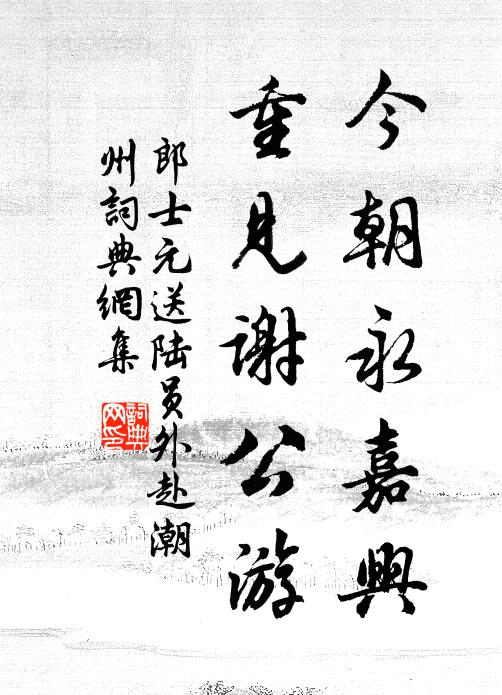 今朝永嘉興
重見謝公游
郎士元送陸員外赴潮
州詞典網集
詞典网印